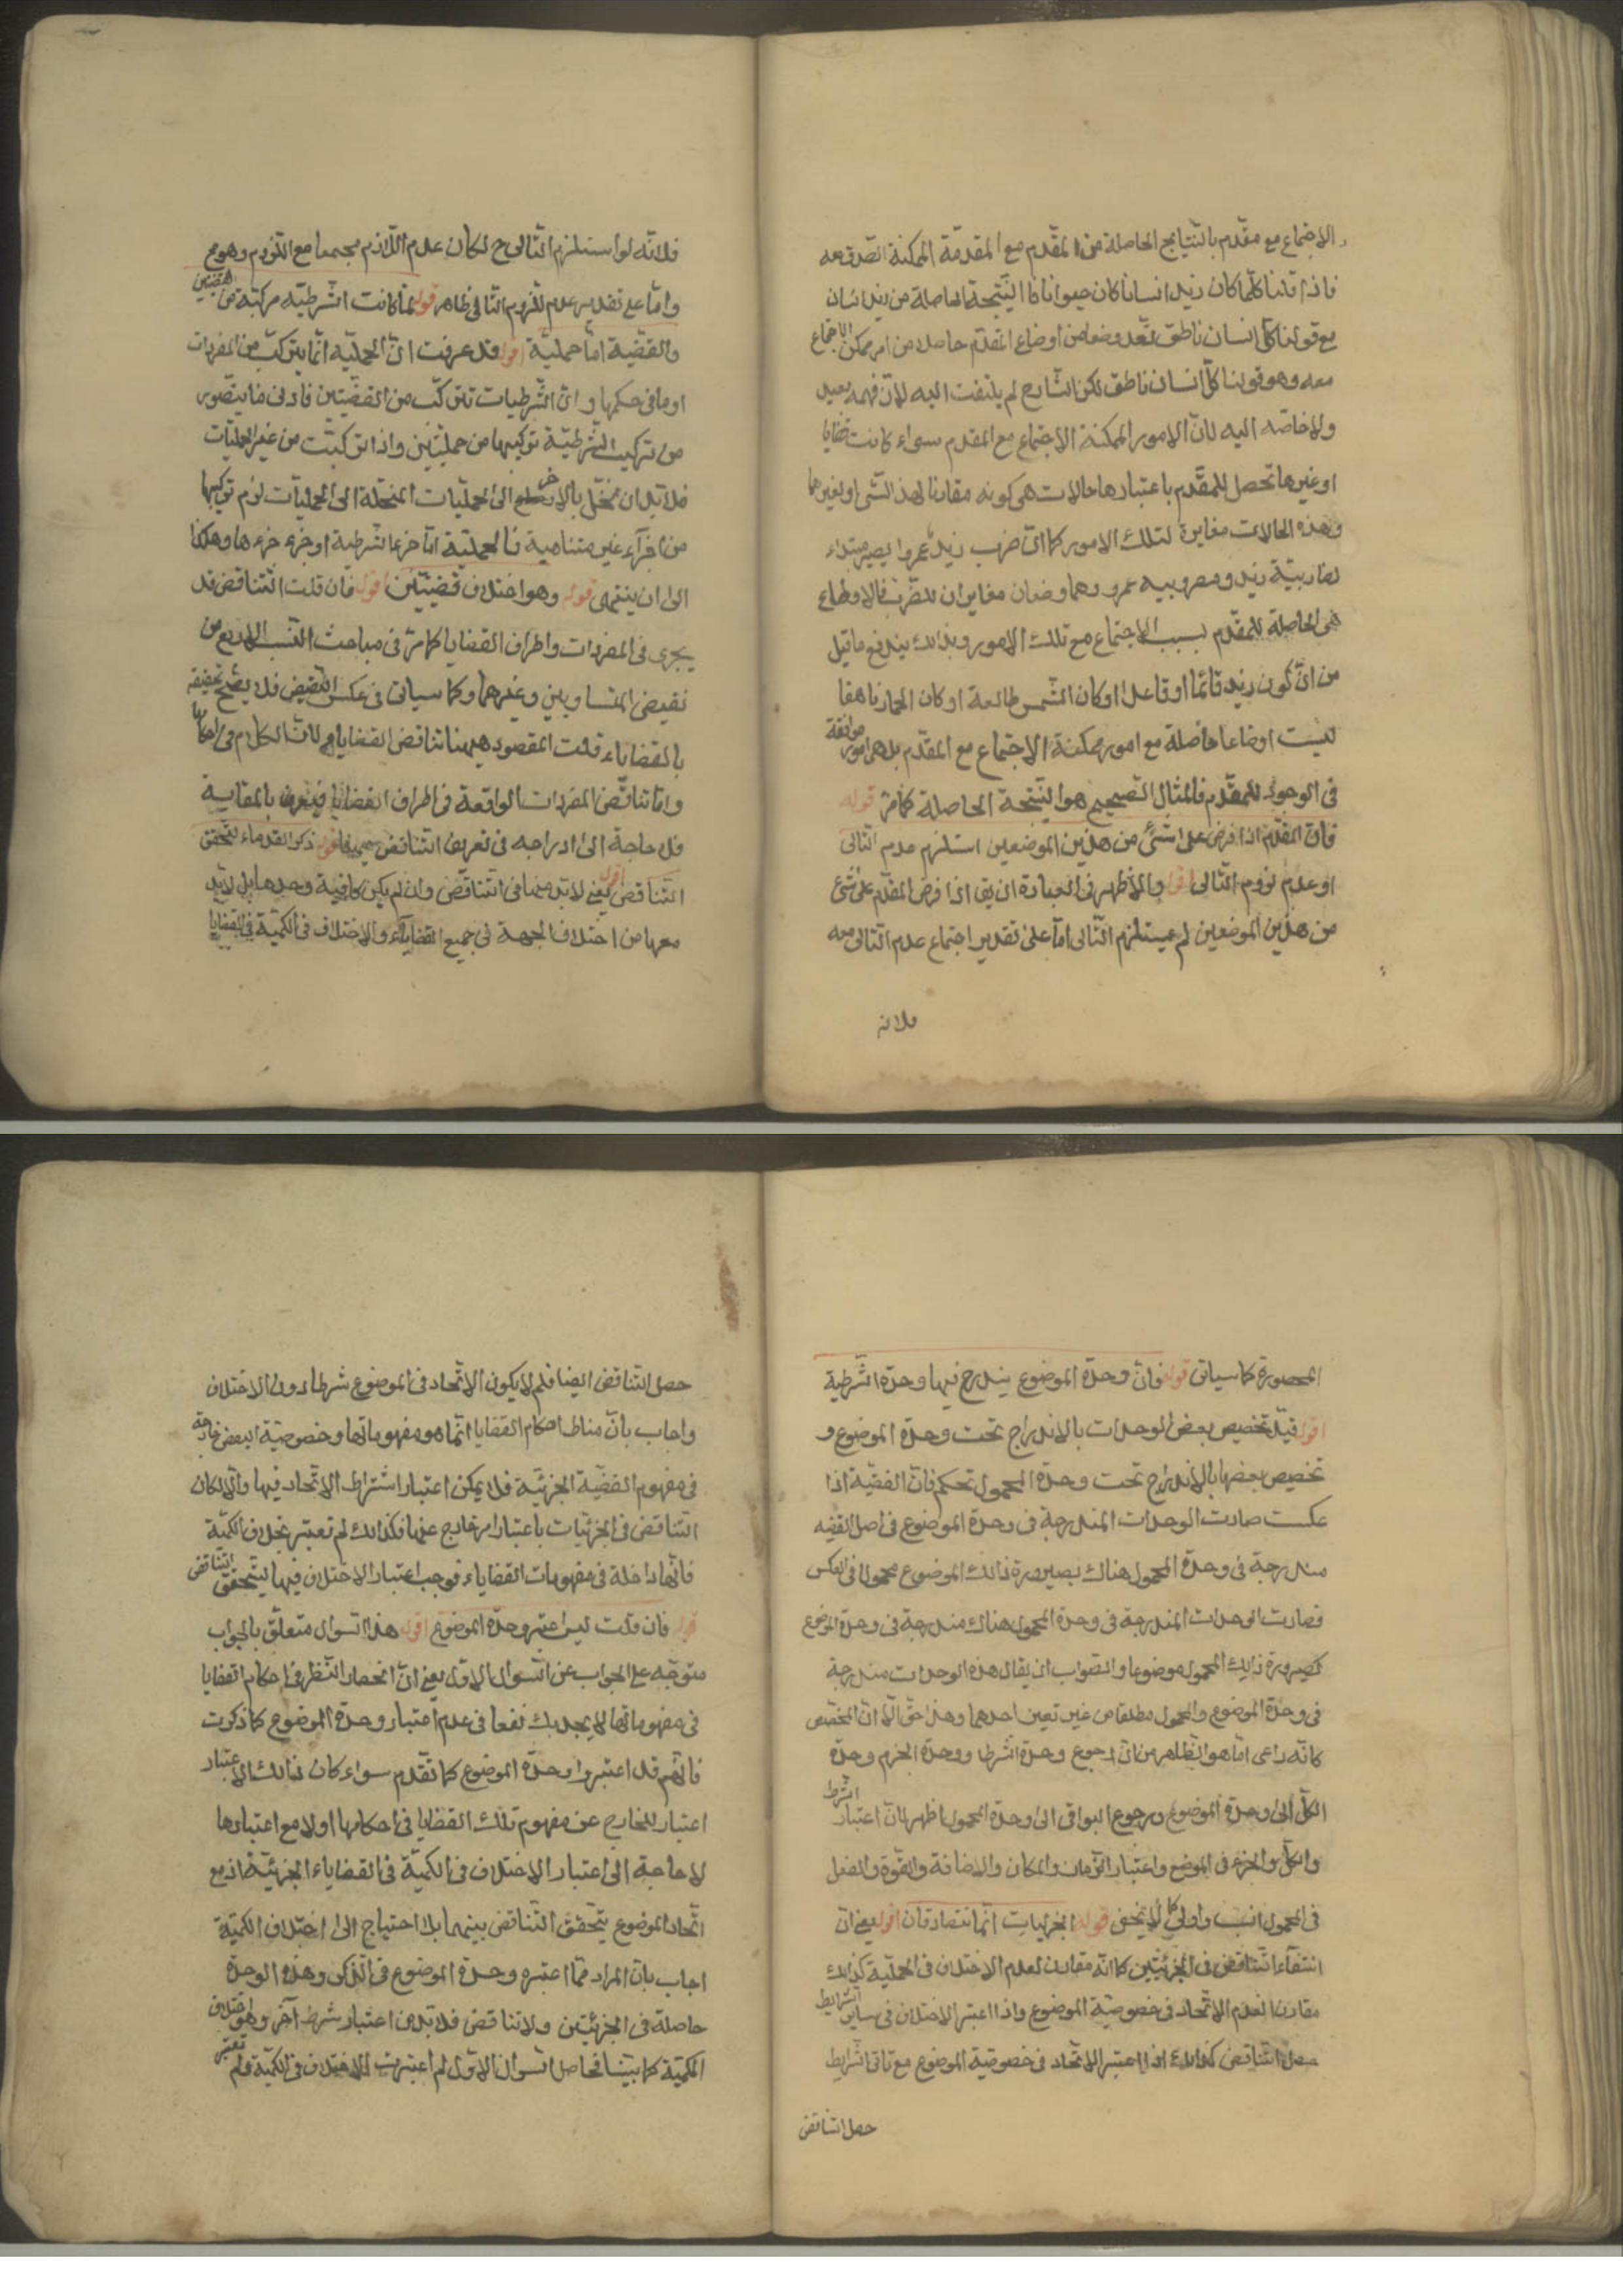 الاجتماع مع مقدم بالنتايج الحاصلة من المقدم مع المقدمة الممكنة الصدق معه
فاذا قلنا كلما كان زيد انسانا كان حيوانا فالنتيجة الحاصلة من زيد انسان
مع قولنا كل انسان ناطق تعد وضعا من اوضاع المقدم حاصلا من امر ممكن الاجتماع
معه وهو قولنا كل انسان ناطق لكن الشارح لم يلتفت اليه لان فهمه بعيد
ولا خاصه اليه لان الامور الممكنة الاجتماع مع المقدم سواء كانت قضايا
او غيرها تحصل للمقدم باعتبارها حالات هى كونه مقارنا لهذا الشى او لغيرها
وهذه الحالات مغايرة لتلك الامور كما ان ضرب زيد عمروا يصير مبتداء
لضاربيّة زيد ومضروبيه عمرو وهما وضعان مغايران للضرب فالاوضاع
هى الحاصلة للمقدم بسبب الاجتماع مع تلك الامور وبذالك يندفع ما قيل
من ان كون زيد قائما او قاعدا او كان الشمس طالعة او كان الحمار ناهقا
ليست اوضاعا حاصلة مع امور ممكنة الاجتماع مع المقدم بل هى امور موافقة
فى الوجود للمقدم فالمثال الصحيح هو النتيجة الحاصلة كما مرّ قوله
فان المقدم اذا فرض على شئ من هذين الموضعين استلزم عدم التالى
او عدم لزوم التالى اقول والاظهر فى العبادة ان يق اذا فرض المقدم على شئ
من هذين الموضعين لم يستلزم التالى امّا على تقدير اجتماع عدم التالى معه
فلانه
فلانّه لو استلزم التالى ح لكان عدم اللازم مجتمعا مع اللزوم وهو مح
وامّا على تقدير عدم لزوم التالى فظاهر قوله لما كانت الشرطيّه مركبّة من قضيتين
والقضيّة امّا حمليّة اقول قد عرفت انّ الحمليّه انّما يتركّب من المفردات
او ما فى حكمها وانّ الشرطيات تتركّب من القضيّتين فادنى ما يتصور
من تركيب الشرطيّة تركيبها من حمليّتين واذا تركبّت من غير الحمليّات
فلا بّد ان تنحّل بالاخره الى الحمليّات المنحلّة الى الحمليّات لزم تركيبها
من اجزآء غير متناهية فالحمليّة امّا جزء الشرطية او جزء جزءها وهكذا
الى ان ينتهى قوله وهو اختلاف قضيّتين اقول فان قلت التناقض قد
يجرى فى المفردات واطراف القضايا كما مرّ فى مباحث النسب الاربع من
نقيضى المتساويين وغيرهما وكما سياتى فى عكس النقيض فلا يصّح تخصيصه
بالقضاياء قلت المقصود ههنا تناقض القضايا لان الكلام فى احكامها
وامّا تناقض المفردات الواقعة فى اطراف القضايا فيعرف بالمقايسة
فلا حاجة الى ادراجه فى تعريف التناقض ههنا قوله ذكر القدماء لتحقق
التناقض اقول يعنى لا بّد منها فى التناقض وان لم يكن كافية وحدها بل لا بّد
معها من اختلاف الجهة فى جميع القضاياء والاختلاف فى الكميّة فى القضايا
المحصورة كما سياتى قوله فانّ وحدة الموضوع يندرج فيها وحدة الشرطية
اقول قيل تخصيص بعض الوحدات بالاندراج تحت وحدة الموضوع و
تخصيص بعضها بالاندراج تحت وحدة المحمول تحكم فان القضيّة اذا
عكست صارت الوحدات المندرجة فى وحدة الموضوع فى اصل القضيه
مندرجة فى وحدة المحمول هناك بصيرورة ذالك الموضوع محمولا فى العكس
فصارت الوحدات المندرجة فى وحدة المحمول هناك مندرجة فى وحدة الموضوع
لصيرورة ذالك المحمول موضوعا والصواب ان يقال هذه الوحدات مندرجة
فى وحدة الموضوع والمحمول مطلقا من غير تعين احدهما وهذا حق الّا ان المخصص
كانّه راعى امّا هو الظاهر من ان رجوع وحدة الشرط ووحدة الجزء وحدة
الكلّ الى وحدة الموضوع ورجوع البواقى الى وحدة المحمول اظهر لان اعتبار الشرط
والكلّ والجزء فى الموضع واعتبار الزمان والمكان والاضافة والقوّة والفعل
فى المحمول انسب واولى كما لا يخفى قوله الجزئيات انّما تتصادقان اقول يعنى انّ
انتفآء التناقض فى الجزئيّتين كما انّه مقارن لعدم الاختلاف فى الحملية كذالك
مقارن لعدم الاتّحاد فى خصوصيّة الموضوع واذا اعتبر الاختلاف فى ساير الشرايط
حصل التناقض كذالك اذا اعتبر الاتّحاد فى خصوصيّة الموضوع مع باقى الشرايط
حصل التناقض
حصل التناقض ايضا فلم لا يكون الاتّحاد فى الموضوع شرطا دون الاختلاف
واجاب بانّ مناط احكام القضايا انّما هو مفهوماتها وخصوصيّة البعض خارجة
فى مفهوم القضيّة الجزئيّة فلا يمكن اعتبار اشتراط الاتّحاد فيها والّا لكان
التناقض فى الجزئيّات باعتبار امر خارج عنها فكذالك لم تعتبر بخلاف الكميّة
فانّها داخلة فى مفهومات القضاياء فوجب اعتبار الاختلاف فيها ليتحقق التناقض
قوله فان قلت ليس اعتبر وحدة الموضوع اقول هذا السوال متعلّق بالجواب
متوجّه على الجواب عن السوال الاوّل يعنى انّ انحصار النظر فى احكام القضايا
فى مفهوماتها لا يجديك نفعا فى عدم اعتبار وحدة الموضوع كما ذكرت
فانّهم قد اعتبروا وحدة الموضوع كما تقدّم سواء كان ذالك الاعتبار
اعتبار للخارج عن مفهوم تلك القضايا فى احكامها اولا مع اعتبارها
لا حاجة الى اعتبار الاختلاف فى الكميّة فى القضاياء الجزئيّة اذ مع
اتّحاد الموضوع يتحقّق التناقض بينهما بلا احتياج الى اختلاف الكميّة
اجاب بان المراد ممّا اعتبره وحدة الموضوع فى الذكر وهذه الوحدة
حاصلة فى الجزئيّتين ولا تناقض فلا بّد من اعتبار شرط آخر وهو اختلاف
الكميّة كما بيّنا فحاصل السوال الاوّل لم اعتبرت الاختلاف فى الكميّة ولم تعتبر